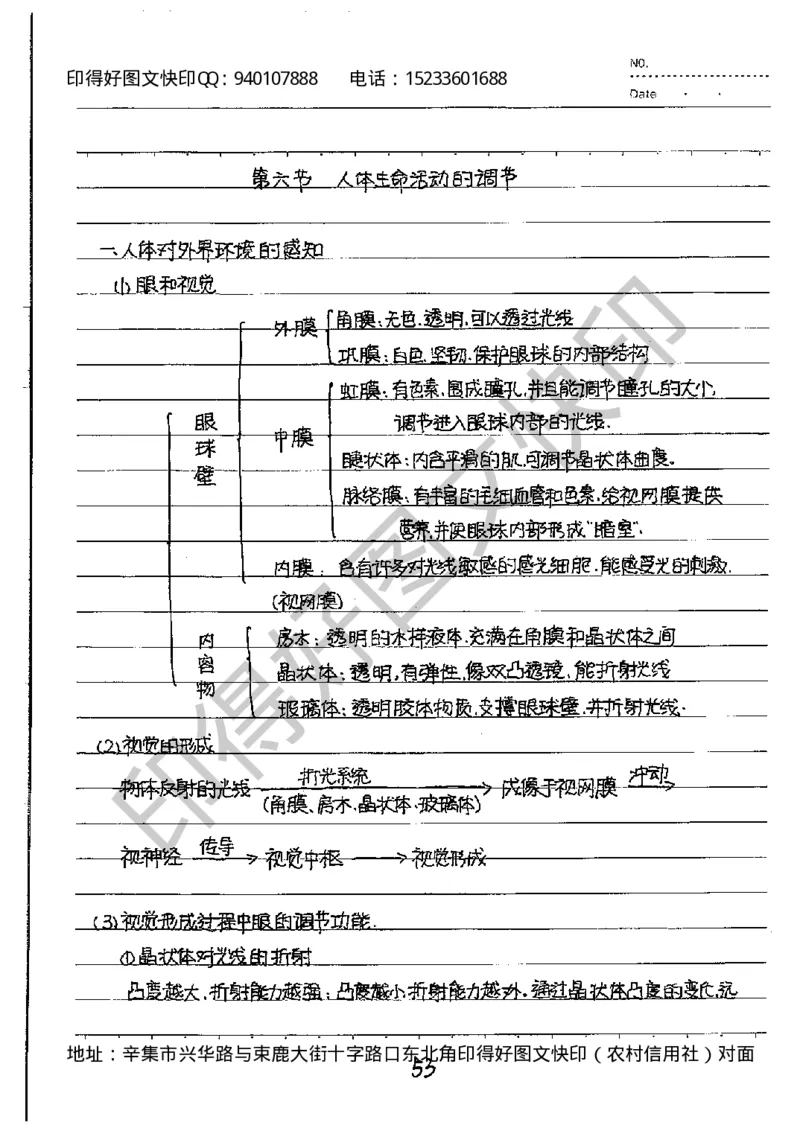 印得好图文快印QQ：940107888 电话：15233601688
NO.
Date
第六节 人体生命活动的调节
一、人体对外界环境的感知
(1)眼和视觉
外膜 角膜：无色、透明，可以透过光线
巩膜：白色、坚韧、保护眼球的内部结构
眼球壁
中膜
虹膜：有色素，围成瞳孔，并且能调节瞳孔的大小，
调节进入眼球内部的光线．
睫状体：内含平滑的肌，可调节晶状体曲度。
脉络膜：有丰富的毛细血管和色素，给视网膜提供
营养，并使眼球内部形成“暗室”．
内膜：含有许多对光线敏感的感光细胞，能感受光的刺激．
(视网膜)
内容物
房水：透明的水样液体，充满在角膜和晶状体之间
晶状体：透明，有弹性，像双凸透镜，能折射光线
玻璃体：透明胶体物质，支撑眼球壁，并折射光线．
(2)视觉的形成
物体反射的光线 折光系统 (角膜、房水、晶状体、玻璃体) → 成像于视网膜 冲动 →
视神经 传导 → 视觉中枢 → 视觉形成
(3)视觉形成过程中眼的调节功能．
①晶状体对光线的折射
凸度越大，折射能力越强；凸度越小，折射能力越外．通过晶状体凸度的变化，远
地址：辛集市兴华路与束鹿大街十字路口东北角印得好图文快印（农村信用社）对面
53
印得好图文快印